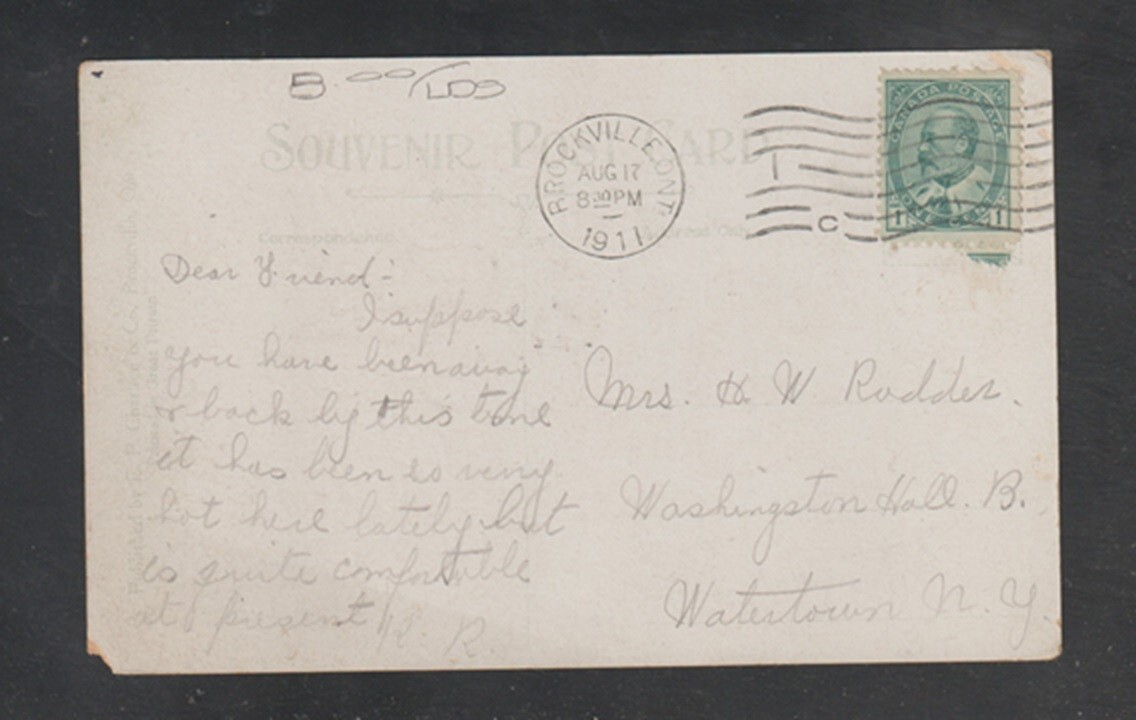 SOUVENIR POST CARD
BROCKVILLE, ONT.
AUG 17
8 30 PM
1911
C
CANADA POSTAGE
1 ONE CENT 1
Correspondence
Dear Friend:-
I suppose
you have been away
or back by this time
it has been so very
hot here lately but
is quite comfortable
at present
R.
Mrs. H W Rodder.
Washington Hall. B.
Watertown N. Y.